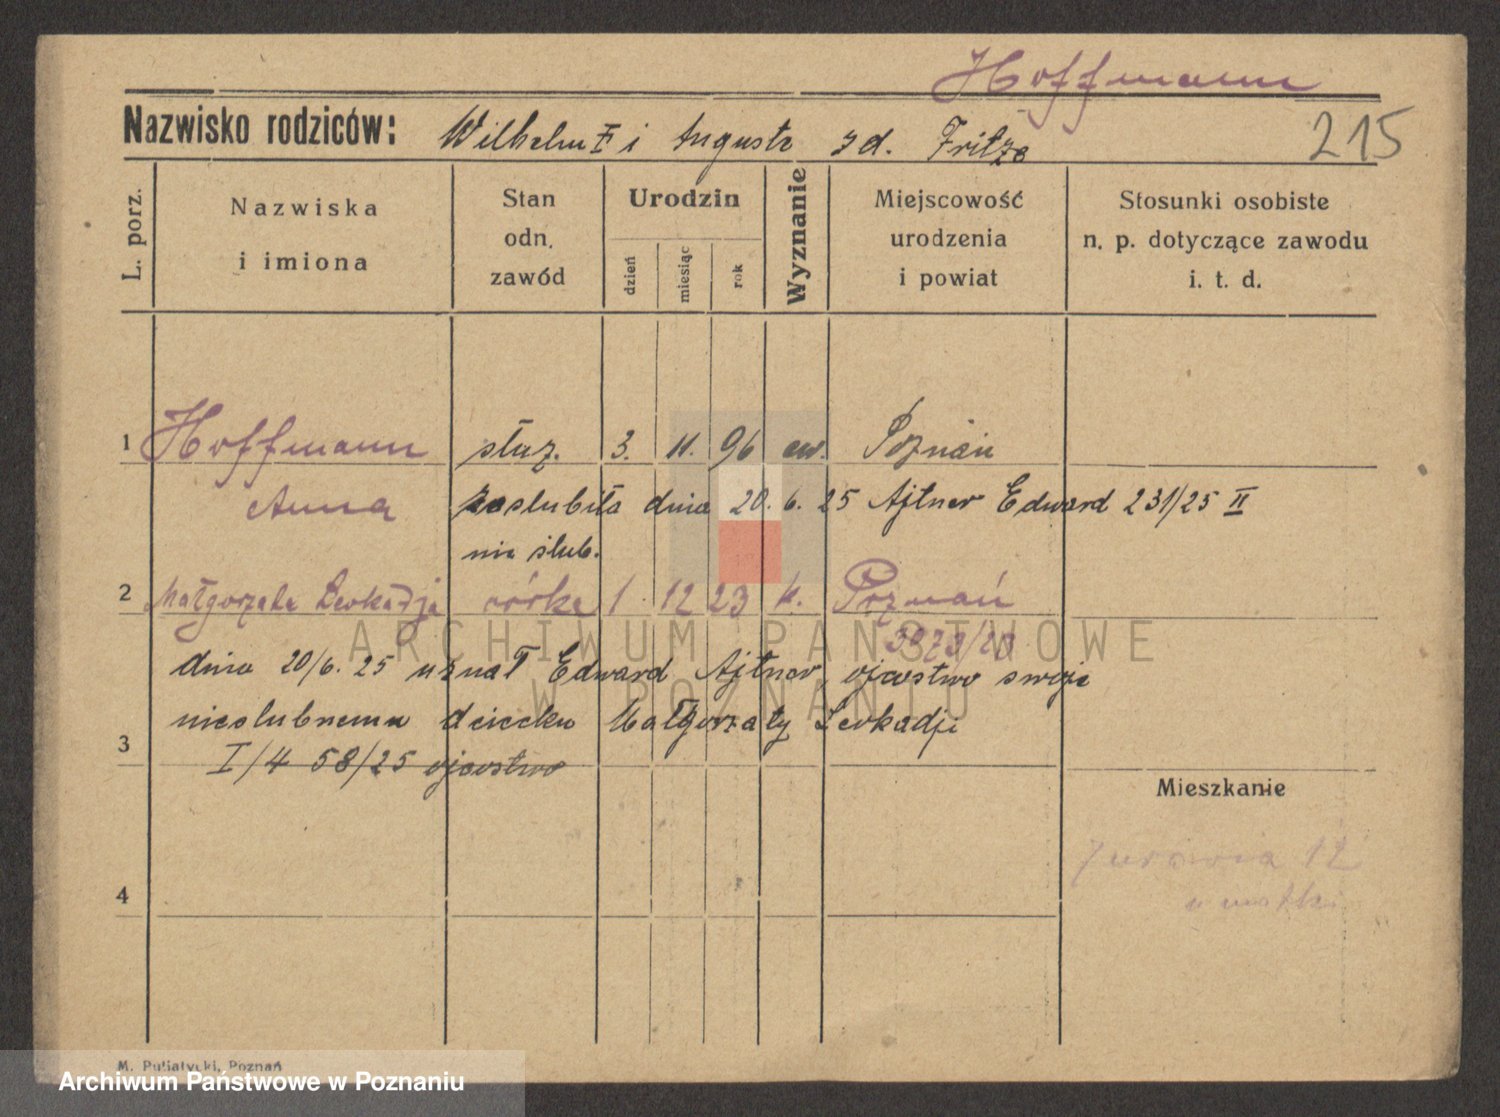 Hoffmann
Nazwisko rodziców: Wilhelm i Augusta z d. Fritze
215
L. porz.
Nazwiska
i imiona
Stan
odn.
zawód
Urodzin
dzień
miesiąc
rok
Wyznanie
Miejscowość
urodzenia
i powiat
Stosunki osobiste
n. p. dotyczące zawodu
i. t. d.
1 Hoffmann służ. 3. 11. 96 ew. Poznań
Anna zaslubiła dnia 20. 6. 25 Ajtner Edward 231/25 II
nie ślub.
2 Małgorzata Leokadja córka 1 12 23 k. Poznań
dnia 20/6. 25 uznał Edward Ajtner ojcostwo swoje
nieslubnemu dziecku Małgorzaty Leokadji
3
I/4 58/25 ojcostwo
Mieszkanie
12
u matki
4
M. Putiatycki, Poznań
ARCHIWUM PAŃSTWOWE
W POZNANIU
Archiwum Państwowe w Poznaniu